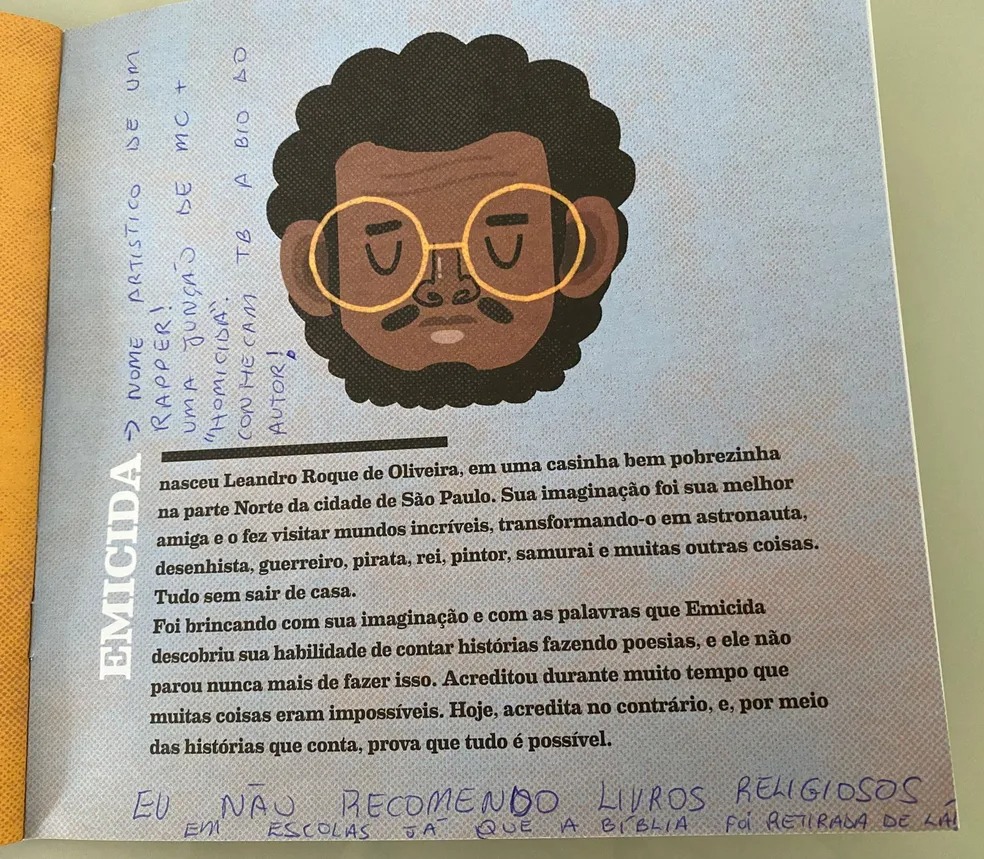 EMICIDA
-> NOME ARTISTICO DE UM
RAPPER!
UMA JUNÇÃO DE MC +
"HOMICIDA".
CONHEÇAM TB A BIO DO
AUTOR!
nasceu Leandro Roque de Oliveira, em uma casinha bem pobrezinha
na parte Norte da cidade de São Paulo. Sua imaginação foi sua melhor
amiga e o fez visitar mundos incríveis, transformando-o em astronauta,
desenhista, guerreiro, pirata, rei, pintor, samurai e muitas outras coisas.
Tudo sem sair de casa.
Foi brincando com sua imaginação e com as palavras que Emicida
descobriu sua habilidade de contar histórias fazendo poesias, e ele não
parou nunca mais de fazer isso. Acreditou durante muito tempo que
muitas coisas eram impossíveis. Hoje, acredita no contrário, e, por meio
das histórias que conta, prova que tudo é possível.
EU NÃO RECOMENDO LIVROS RELIGIOSOS
EM ESCOLAS JÁ QUE A BÍBLIA FOI RETIRADA DE LÁ!